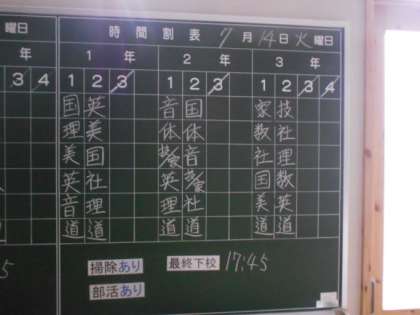 曜日 時間割表 7月14日火曜日
年 1年 2年 3年
3 4 1 2 3 1 2 3 1 2 3 4
国 英 音 国 家 技
理 美 休 休 数 社
美 国 音 社 理
英 社 英 国 数
音 理 理 社 美 英
道 道 道 道 道 道
5 掃除あり 最終下校 17:45
部活あり